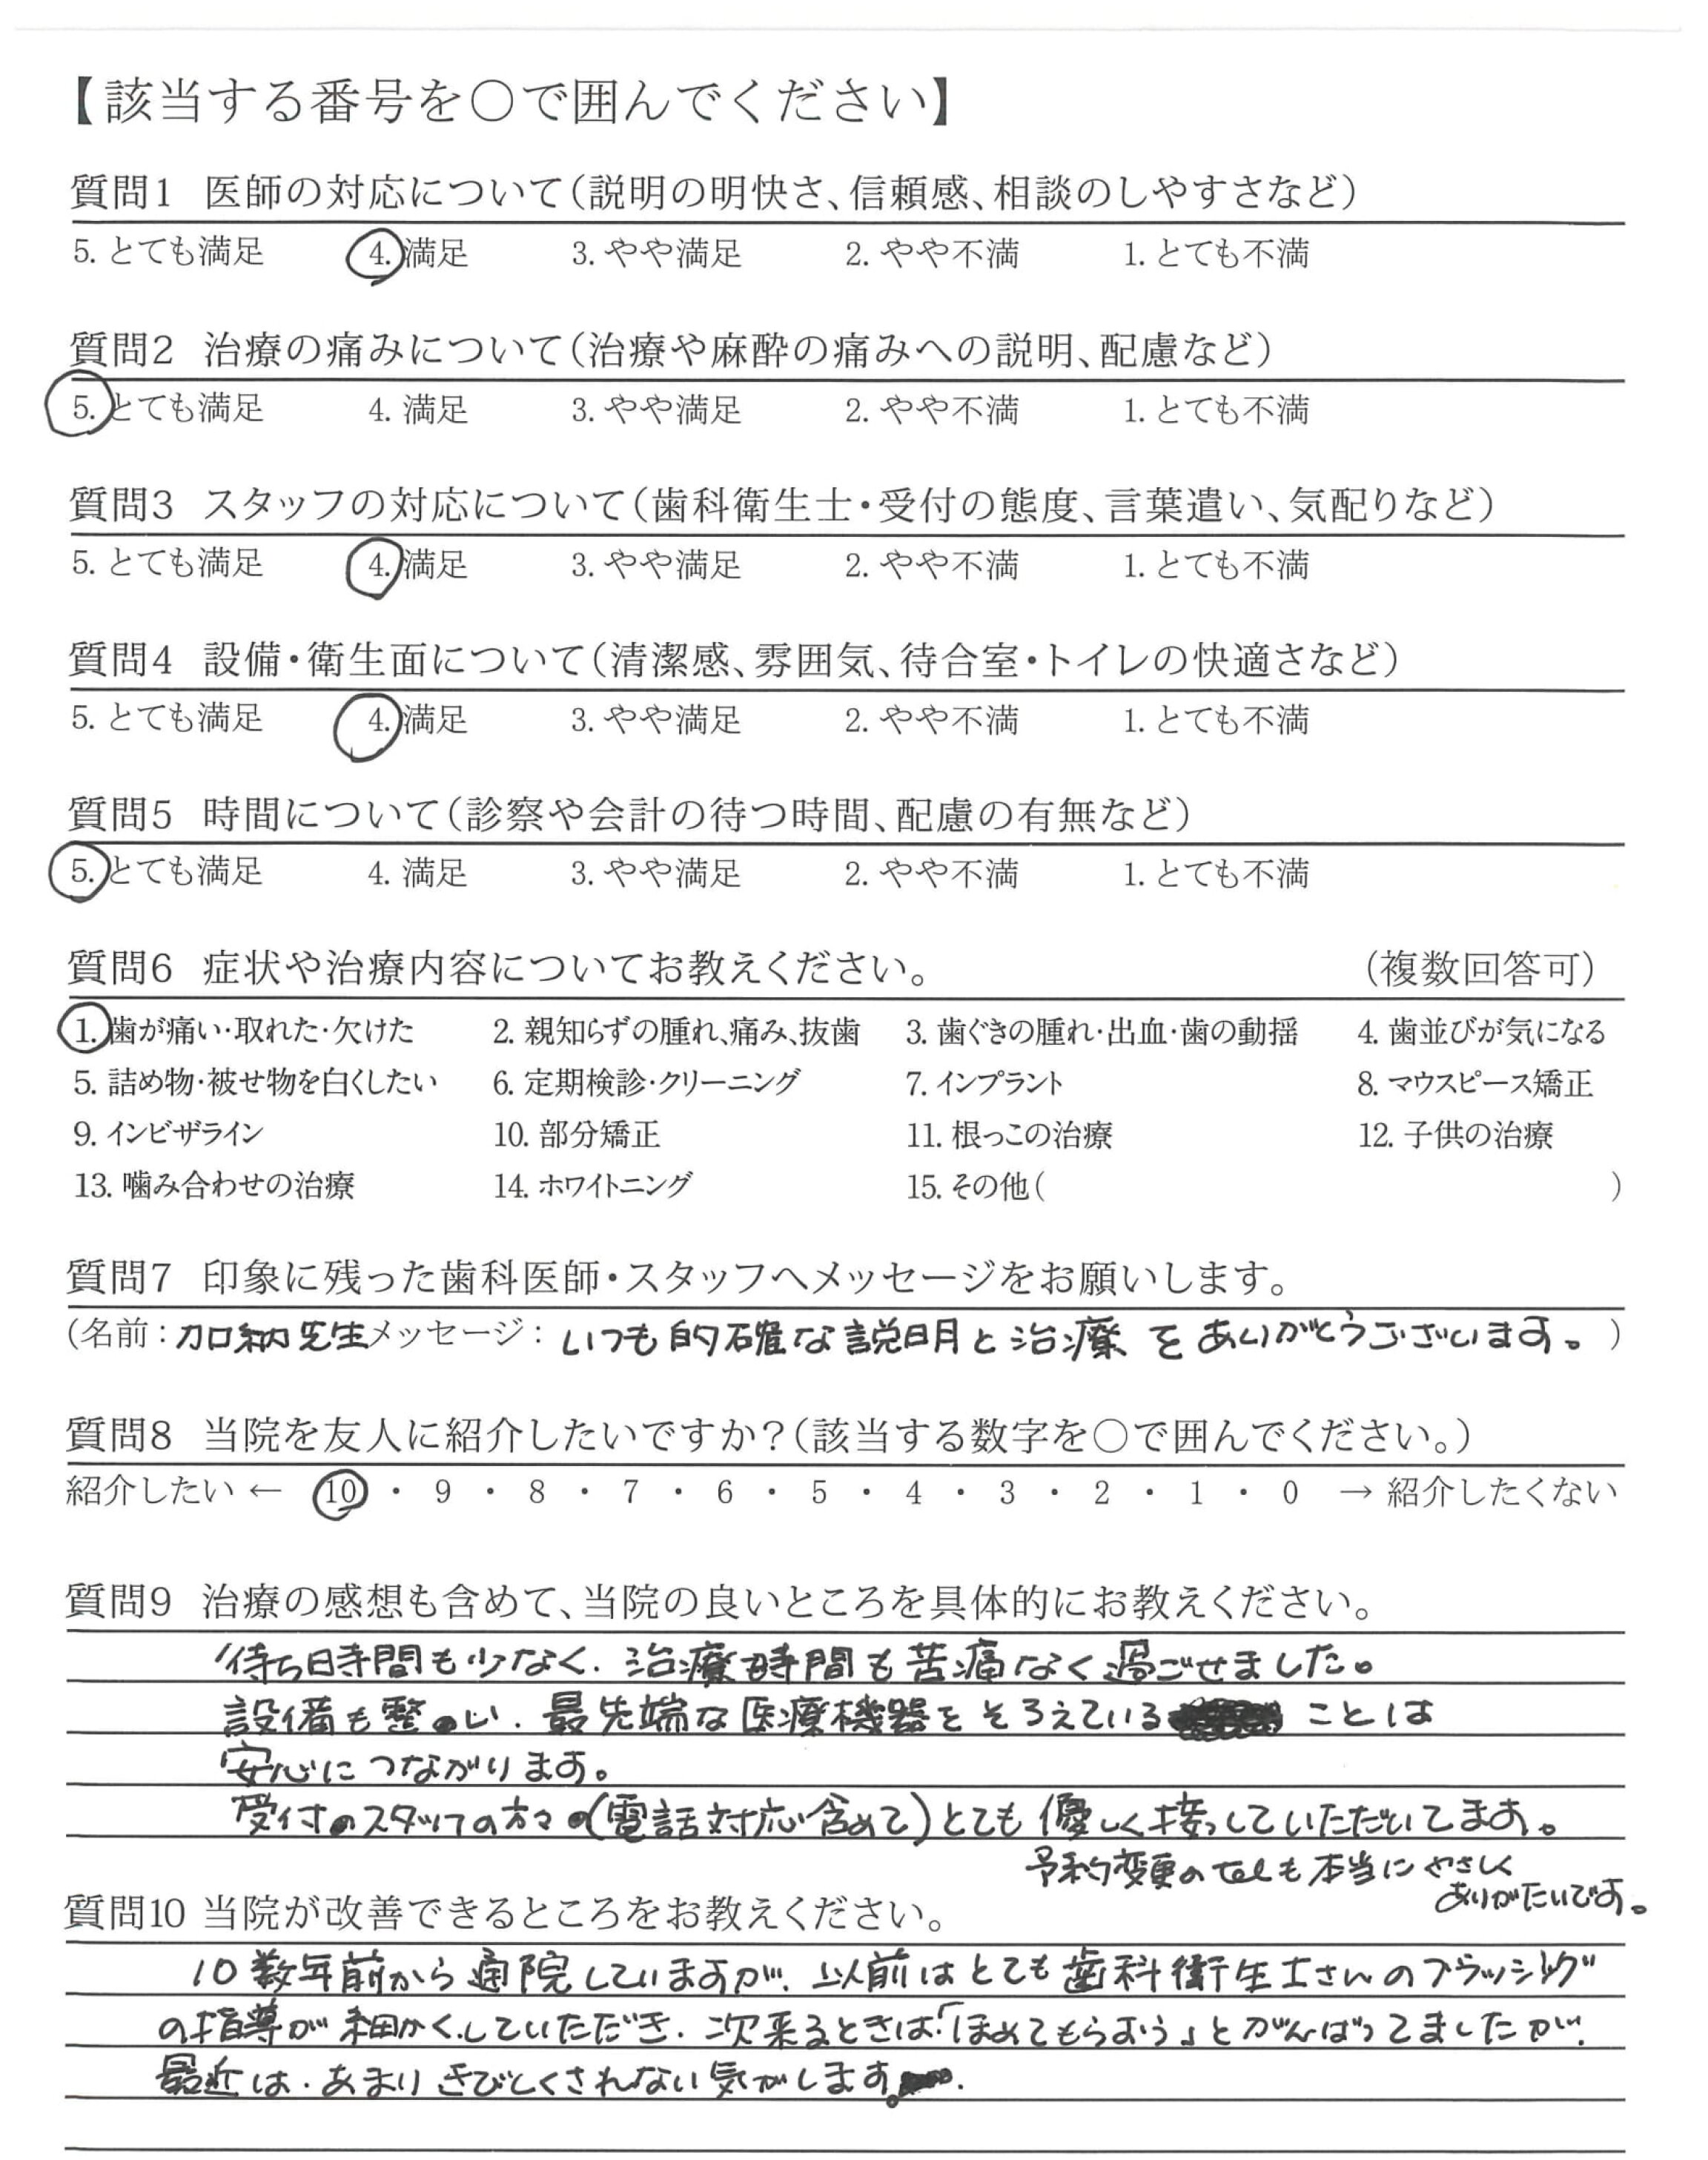 【該当する番号を○で囲んでください】
質問1 医師の対応について(説明の明快さ、信頼感、相談のしやすさなど)
5. とても満足 4. 満足 3. やや満足 2. やや不満 1. とても不満
質問2 治療の痛みについて(治療や麻酔の痛みへの説明、配慮など)
5. とても満足 4. 満足 3. やや満足 2. やや不満 1. とても不満
質問3 スタッフの対応について(歯科衛生士・受付の態度、言葉遣い、気配りなど)
5. とても満足 4. 満足 3. やや満足 2. やや不満 1. とても不満
質問4 設備・衛生面について(清潔感、雰囲気、待合室・トイレの快適さなど)
5. とても満足 4. 満足 3. やや満足 2. やや不満 1. とても不満
質問5 時間について(診察や会計の待つ時間、配慮の有無など)
5. とても満足 4. 満足 3. やや満足 2. やや不満 1. とても不満
質問6 症状や治療内容についてお教えください。 (複数回答可)
1. 歯が痛い・取れた・欠けた 2. 親知らずの腫れ、痛み、抜歯 3. 歯ぐきの腫れ・出血・歯の動揺 4. 歯並びが気になる
5. 詰め物・被せ物を白くしたい 6. 定期検診・クリーニング 7. インプラント 8. マウスピース矯正
9. インビザライン 10. 部分矯正 11. 根っこの治療 12. 子供の治療
13. 噛み合わせの治療 14. ホワイトニング 15. その他( )
質問7 印象に残った歯科医師・スタッフへメッセージをお願いします。
(名前:加納先生 メッセージ:いつも的確な説明と治療をありがとうございます。)
質問8 当院を友人に紹介したいですか?(該当する数字を○で囲んでください。)
紹介したい ← 10 ・ 9 ・ 8 ・ 7 ・ 6 ・ 5 ・ 4 ・ 3 ・ 2 ・ 1 ・ 0 → 紹介したくない
質問9 治療の感想も含めて、当院の良いところを具体的にお教えください。
待ち時間も少なく、治療時間も苦痛なく過ごせました。
設備も整のい、最先端な医療機器をそろえていることは
安心につながります。
受付のスタッフの方々の(電話対応含めて)とても優しく接っしていただいてます。
予約変更のtelも本当にやさしく
ありがたいです。
質問10 当院が改善できるところをお教えください。
10数年前から通院していますが、以前はとても歯科衛生士さんのブラッシング
の指導が細かくしていただき、次来るときは「ほめてもらおう」とがんばってましたが、
最近は、あまりきびしくされない気がします。